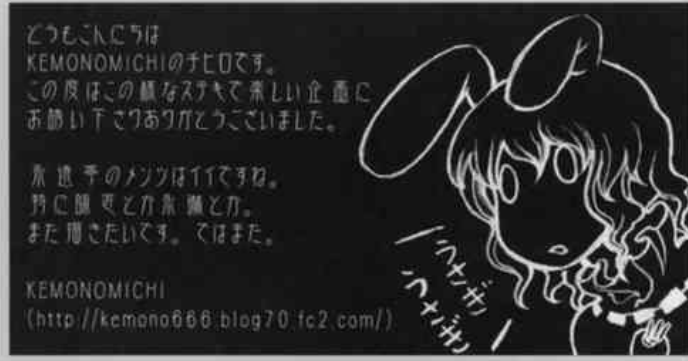 どうもこんにちは
KEMONOMICHIのチヒロです。
この度はこの様なステキで楽しい企画に
お誘い下さりありがとうございました。
永遠亭のメンツはイイですね。
特に師匠とか永琳とか。
また描きたいです。ではまた。
KEMONOMICHI
(http://kemono666.blog70.fc2.com/)